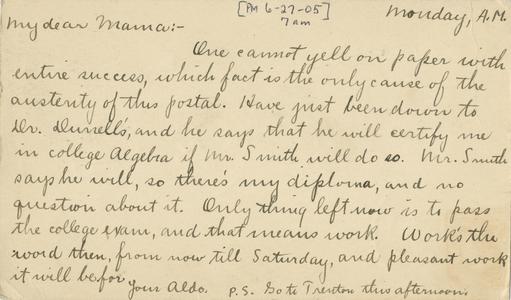 [PM 6-27-05]
7am
Monday, A.M.
My dear Mama:-
One cannot yell on paper with
entire success, which fact is the only cause of the
austerity of this postal. Have just been down to
Dr. Durrell's, and he says that he will certify me
in college Algebra if Mr. Smith will do so. Mr. Smith
says he will, so there's my diploma, and no
question about it. Only thing left now is to pass
the college exam, and that means work. Work's the
word then, from now till Saturday, and pleasant work
it will be for
Your Aldo. P.S. Go to Trenton this afternoon.